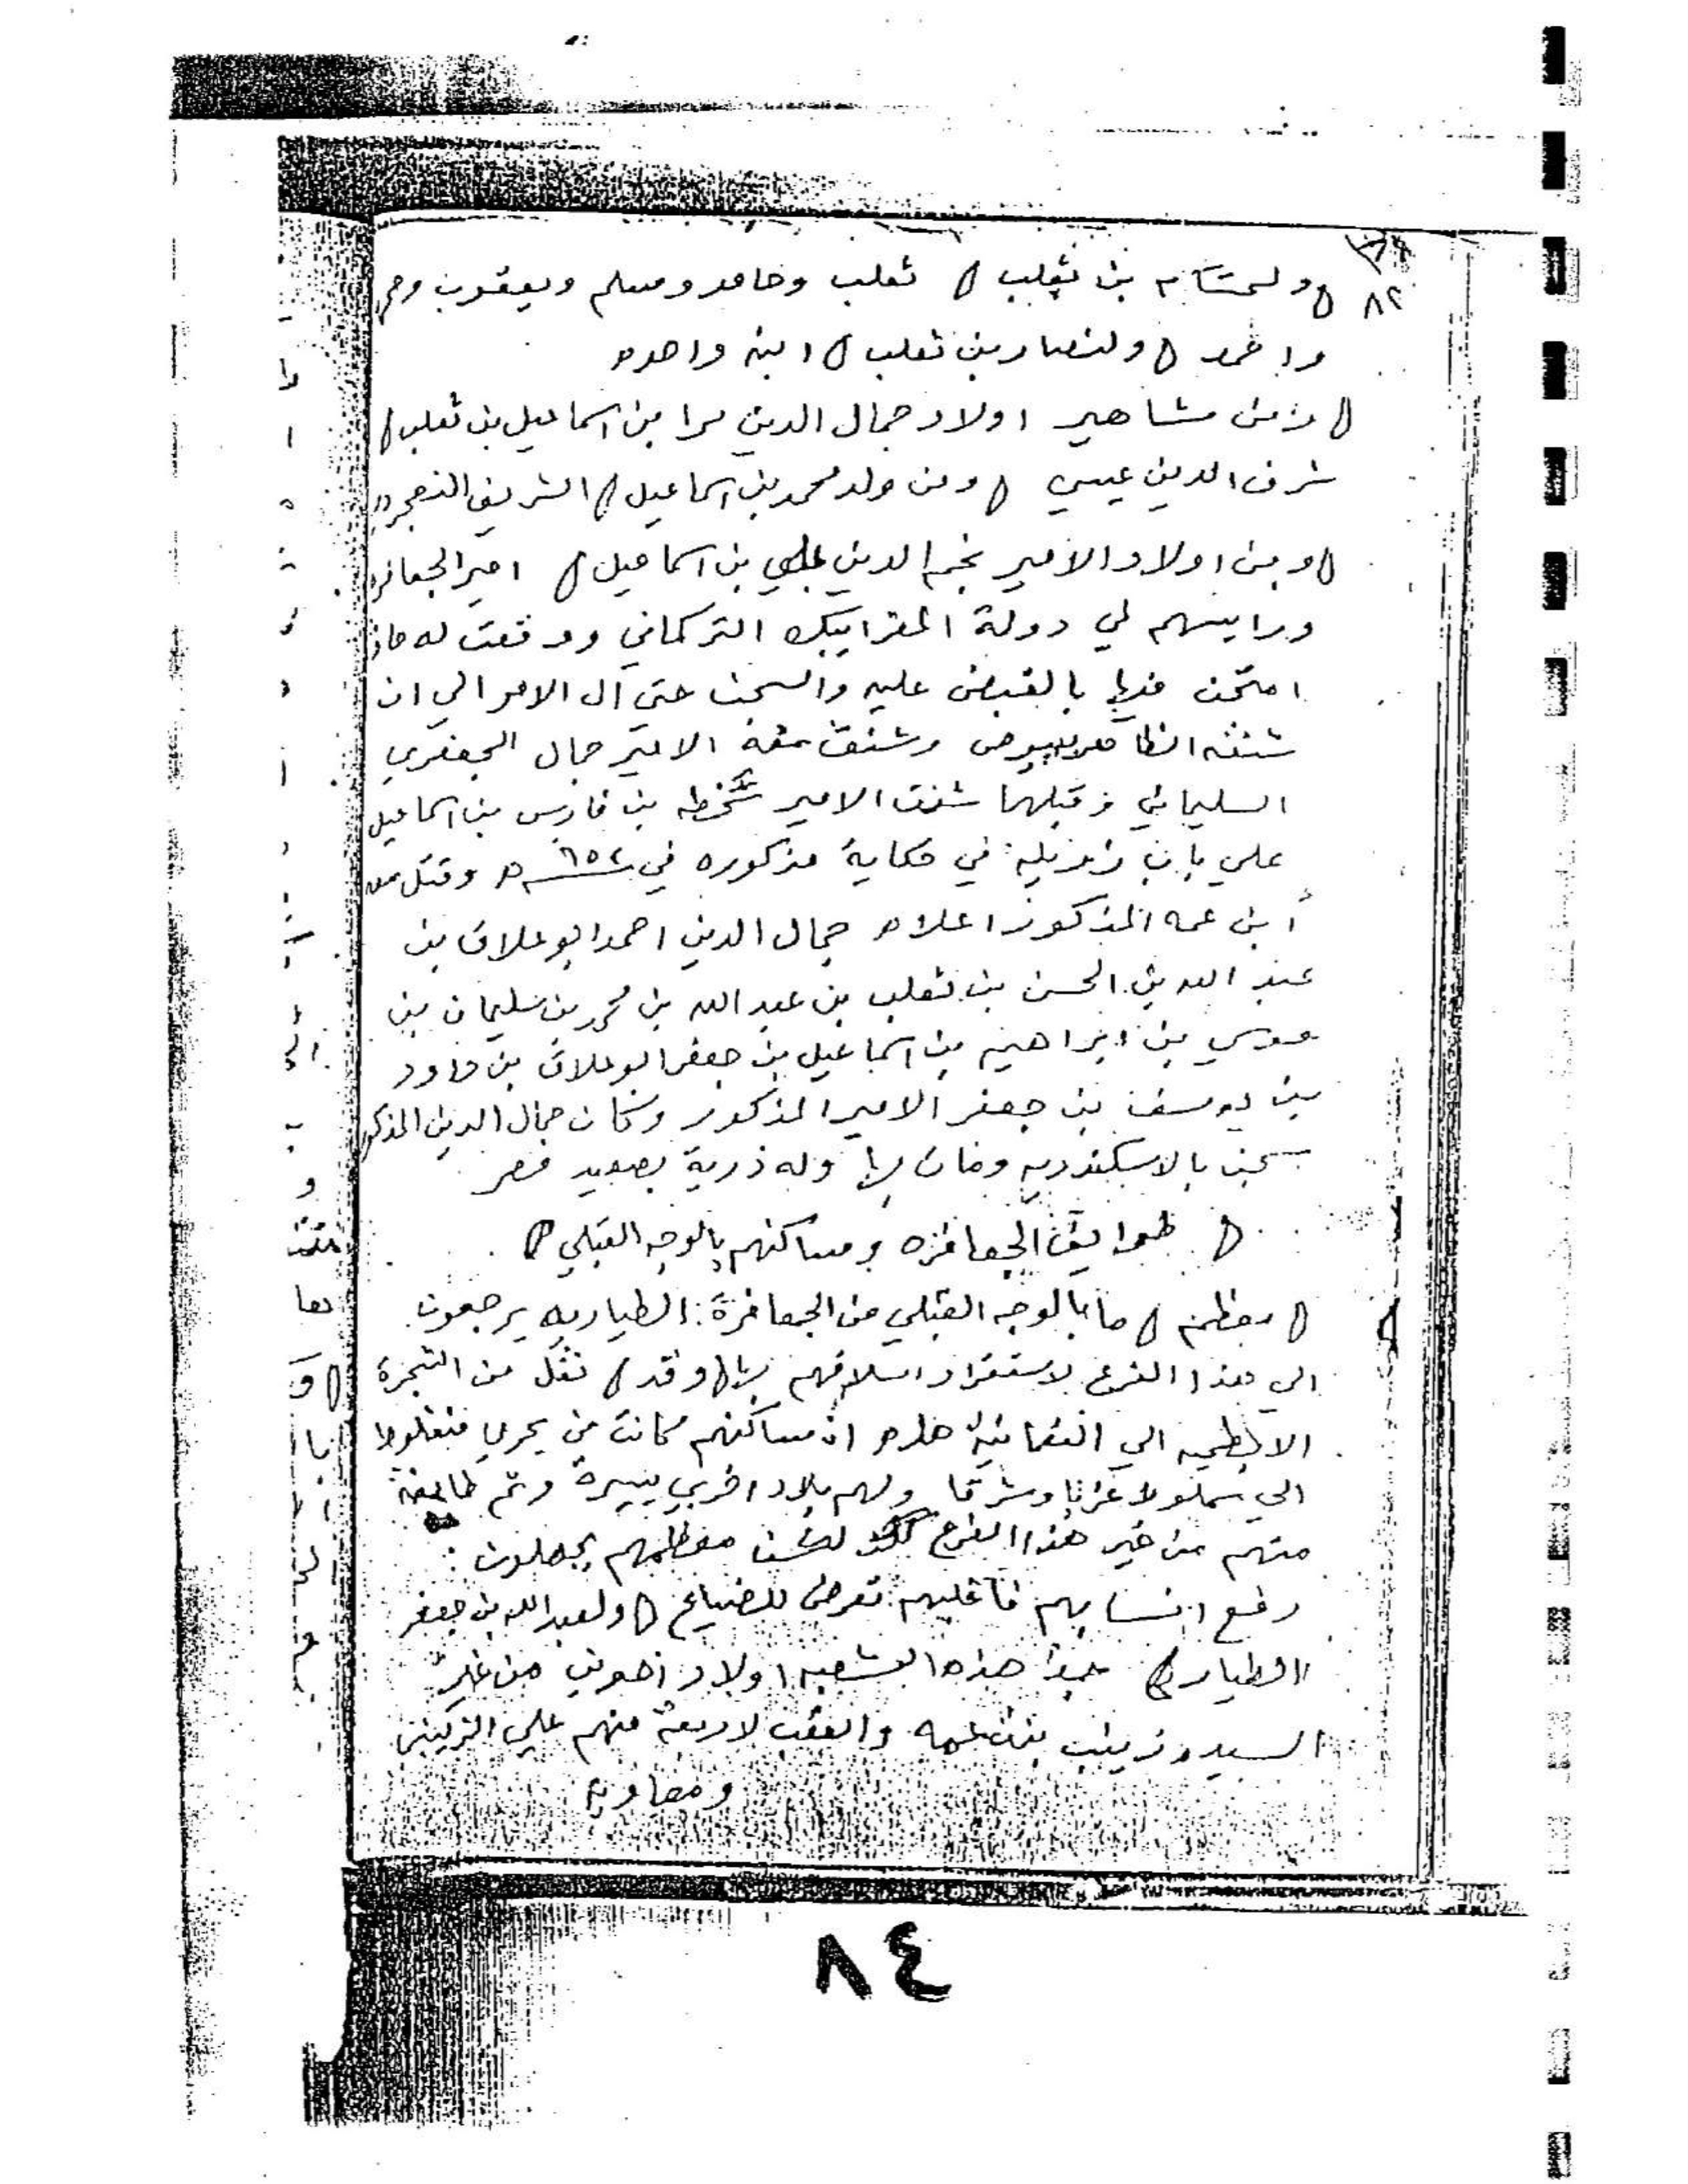 ٨٢
ولحسام بن ثعلب ثعلب وحامد ومسلم ويعقوب
واحمد ولنصار بن ثعلب ابنه واحده
ومن مشاهير اولاد جمال الدين بن اسماعيل بن ثعلب
شرف الدين عيسي ومن ولد محمد بن اسماعيل الشريف
ومن اولاد الامير نجم الدين علي بن اسماعيل امير الجعافره
ورايسهم في دولة المعز ايبك التركماني ووقعت له
امتحن فيها بالقبض عليه والسجن حتي آل الامر الي ان
شنقه الظاهر بيبرص وشنق معه الامير جمال الجعفري
السليماني وقبلهما شنق الامير بن فارس بن اسماعيل
علي باب زويله في حكاية مذكوره في وقتل معه
أبن عمه المذكور اعلاه جمال الدين احمد ابو علاق بن
عبد الله بن الحسن بن ثعلب بن عبد الله بن محمد بن سليمان بن
موسي بن ابراهيم بن اسماعيل بن جعفر ابو علاق بن داود
بن يوسف بن جعفر الامير المذكور وكان جمال الدين المذكور
سجن بالاسكندريه ومات بها وله ذرية بصعيد مصر
طوايف الجعافره ومساكنهم بالوجه القبلي
معظم ما بالوجه القبلي من الجعافرة الطياريه يرجعون
الي هذا الفرع لاستقرار اسلافهم بها وقد نقل من الشجرة
الي ان مساكنهم كانت من بحري منفلوط
الي سملوط غربا وشرقا ولهم بلاد اخري يسيرة وثم طايفة
منهم من غير هذا الفرع لكن معظمهم يجهلون
رفع انسابهم فاغلبهم تعرض للضياع ولعبد الله بن جعفر
الطيار جد هذه الشعبه اولاد اخرين من غير
السيده زينب بنت عمه والعقب لاربعة منهم علي الزينبي
ومعاوية
٨٤